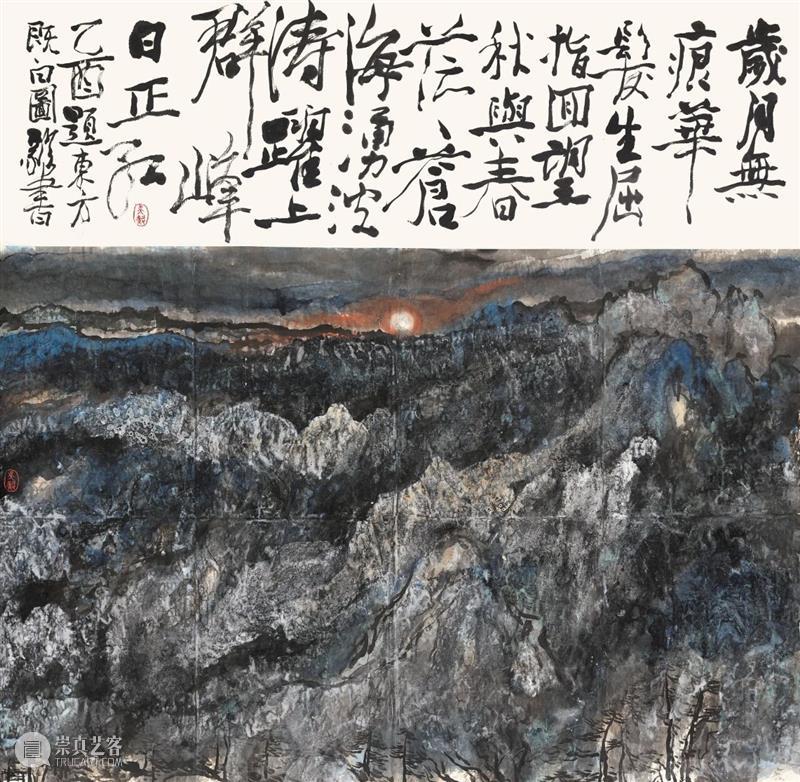 歲月無
痕華
髮生屈
指回望
秋與春
茫々蒼
海湧波
濤躍上
群峰
日正紅
乙酉題東方
既白圖毅書
崇真艺客